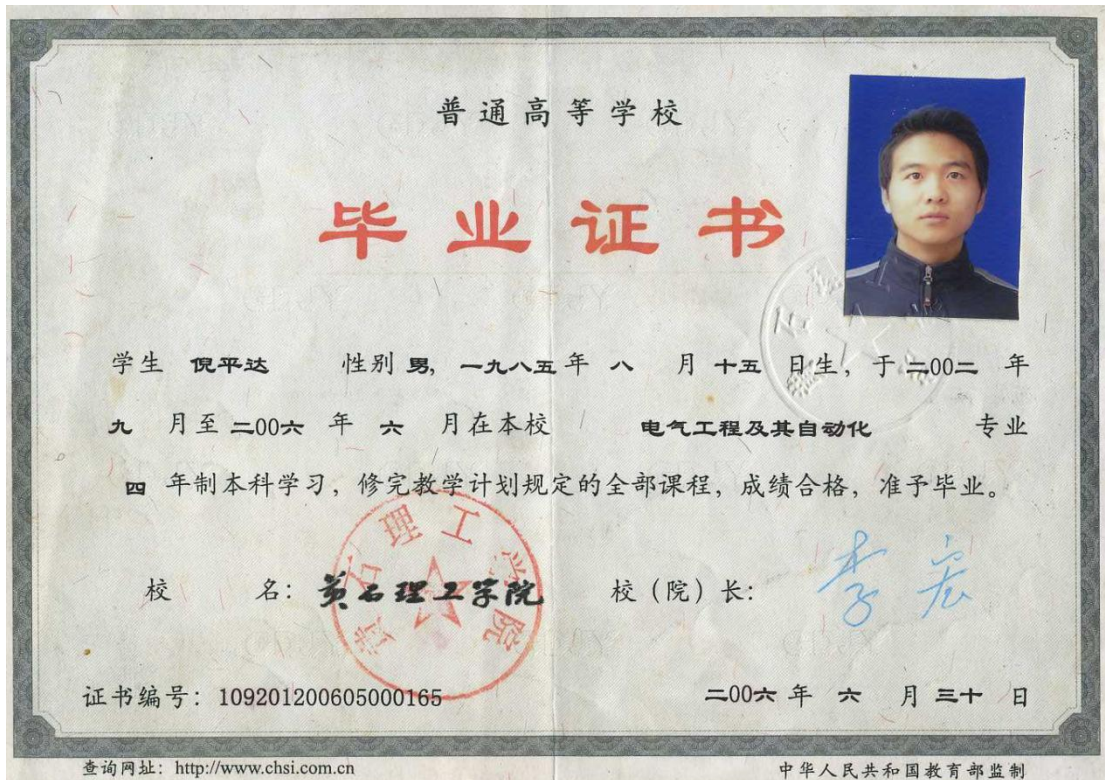 普通高等学校
毕业证书
学生 倪平达 性别 男, 一九八五年 八 月 十五 日生, 于 二00二 年
九 月至 二00六 年 六 月在本校 电气工程及其自动化 专业
四 年制本科学习, 修完教学计划规定的全部课程, 成绩合格, 准予毕业。
校 名: 黄石理工学院 校(院)长: 李宏
黄石理工学院
证书编号: 109201200605000165 二00六 年 六 月 三十 日
查询网址: http://www.chsi.com.cn 中华人民共和国教育部监制